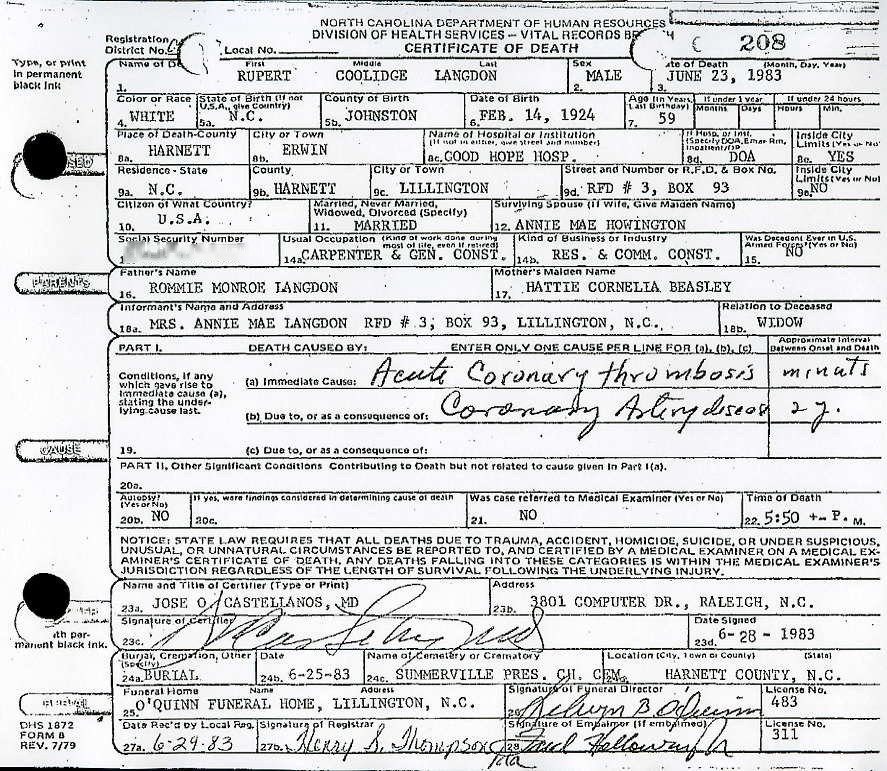 NORTH CAROLINA DEPARTMENT OF HUMAN RESOURCES
DIVISION OF HEALTH SERVICES – VITAL RECORDS
CERTIFICATE OF DEATH
208
Registration
District No.
Local No.
Type, or print
in permanent
black ink
Name of
First Middle Last
1. RUPERT COOLIDGE LANGDON
Sex
2. MALE
of Death (Month, Day, Year)
3. JUNE 23, 1983
Color or Race
4. WHITE
State of Birth (If not
U.S.A., give Country)
5a. N.C.
County of Birth
5b. JOHNSTON
Date of Birth
6. FEB. 14, 1924
Age (In Years,
Last Birthday)
7. 59
If under 1 year
Months Days
If under 24 hours
Hours Min.
Place of Death-County
8a. HARNETT
City or Town
8b. ERWIN
Name of Hospital or Institution
(If not in either, give street and number)
8c. GOOD HOPE HOSP.
If Hosp. or Inst.
(Specify DOA, Emer Rm,
8d. DOA
Inside City
Limits (Yes or No)
8e. YES
Residence - State
9a. N.C.
County
9b. HARNETT
City or Town
9c. LILLINGTON
Street and Number or R.F.D. & Box No.
9d. RFD # 3, BOX 93
Inside City
Limits (Yes or No)
9e. NO
Citizen of What Country?
10. U.S.A.
Married, Never Married,
Widowed, Divorced (Specify)
11. MARRIED
Surviving Spouse (If Wife, Give Maiden Name)
12. ANNIE MAE HOWINGTON
Social Security Number
Usual Occupation (Kind of work done during
most of life, even if retired)
14a. CARPENTER & GEN. CONST.
Kind of Business or Industry
14b. RES. & COMM. CONST.
Was Decedent Ever in U.S.
Armed Forces? (Yes or No)
15. NO
PARENTS
Father's Name
16. ROMMIE MONROE LANGDON
Mother's Maiden Name
17. HATTIE CORNELIA BEASLEY
Informant's Name and Address
18a. MRS. ANNIE MAE LANGDON RFD # 3, BOX 93, LILLINGTON, N.C.
Relation to Deceased
18b. WIDOW
PART I. DEATH CAUSED BY: ENTER ONLY ONE CAUSE PER LINE FOR (a), (b), (c)
Approximate Interval
Between Onset and Death
Conditions, if any
which gave rise to
immediate cause (a),
stating the under-
lying cause last.
(a) Immediate Cause: Acute Coronary thrombosis minuts
(b) Due to, or as a consequence of: Coronary Artery disease 2 y.
CAUSE
19. (c) Due to, or as a consequence of:
PART II. Other Significant Conditions Contributing to Death but not related to cause given in Part I(a).
20a.
Autopsy?
(Yes or No)
20b. NO
If yes, were findings considered in determining cause of death
20c.
Was case referred to Medical Examiner (Yes or No)
21. NO
Time of Death
22. 5:50 +- P. M.
NOTICE: STATE LAW REQUIRES THAT ALL DEATHS DUE TO TRAUMA, ACCIDENT, HOMICIDE, SUICIDE, OR UNDER SUSPICIOUS,
UNUSUAL, OR UNNATURAL CIRCUMSTANCES BE REPORTED TO, AND CERTIFIED BY A MEDICAL EXAMINER ON A MEDICAL EX-
AMINER'S CERTIFICATE OF DEATH, ANY DEATHS FALLING INTO THESE CATEGORIES IS WITHIN THE MEDICAL EXAMINER'S
JURISDICTION REGARDLESS OF THE LENGTH OF SURVIVAL FOLLOWING THE UNDERLYING INJURY.
Name and Title of Certifier (Type or Print)
23a. JOSE O. CASTELLANOS, MD
Address
23b. 3801 COMPUTER DR., RALEIGH, N.C.
Signature of Certifier
23c.
Date Signed
23d. 6-28-1983
manent black ink.
Burial, Cremation, Other
(Specify)
24a. BURIAL
Date
24b. 6-25-83
Name of Cemetery or Crematory
24c. SUMMERVILLE PRES. CH. CEM.
Location (City, Town or County) (State)
HARNETT COUNTY, N.C.
Funeral Home Name Address
25. O'QUINN FUNERAL HOME, LILLINGTON, N.C.
Signature of Funeral Director
License No.
483
DHS 1872
FORM 8
REV. 7/79
Date Rec'd by Local Reg.
27a. 6-29-83
Signature of Registrar
27b. Henry S. Thompson
Signature of Embalmer (If embalmed)
28.
License No.
311